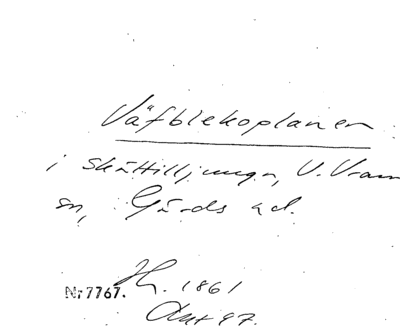 Väfblekoplanen
i Skättilljunga, V. Vram
sn, Gärds hd.
Nr 7767.
1861